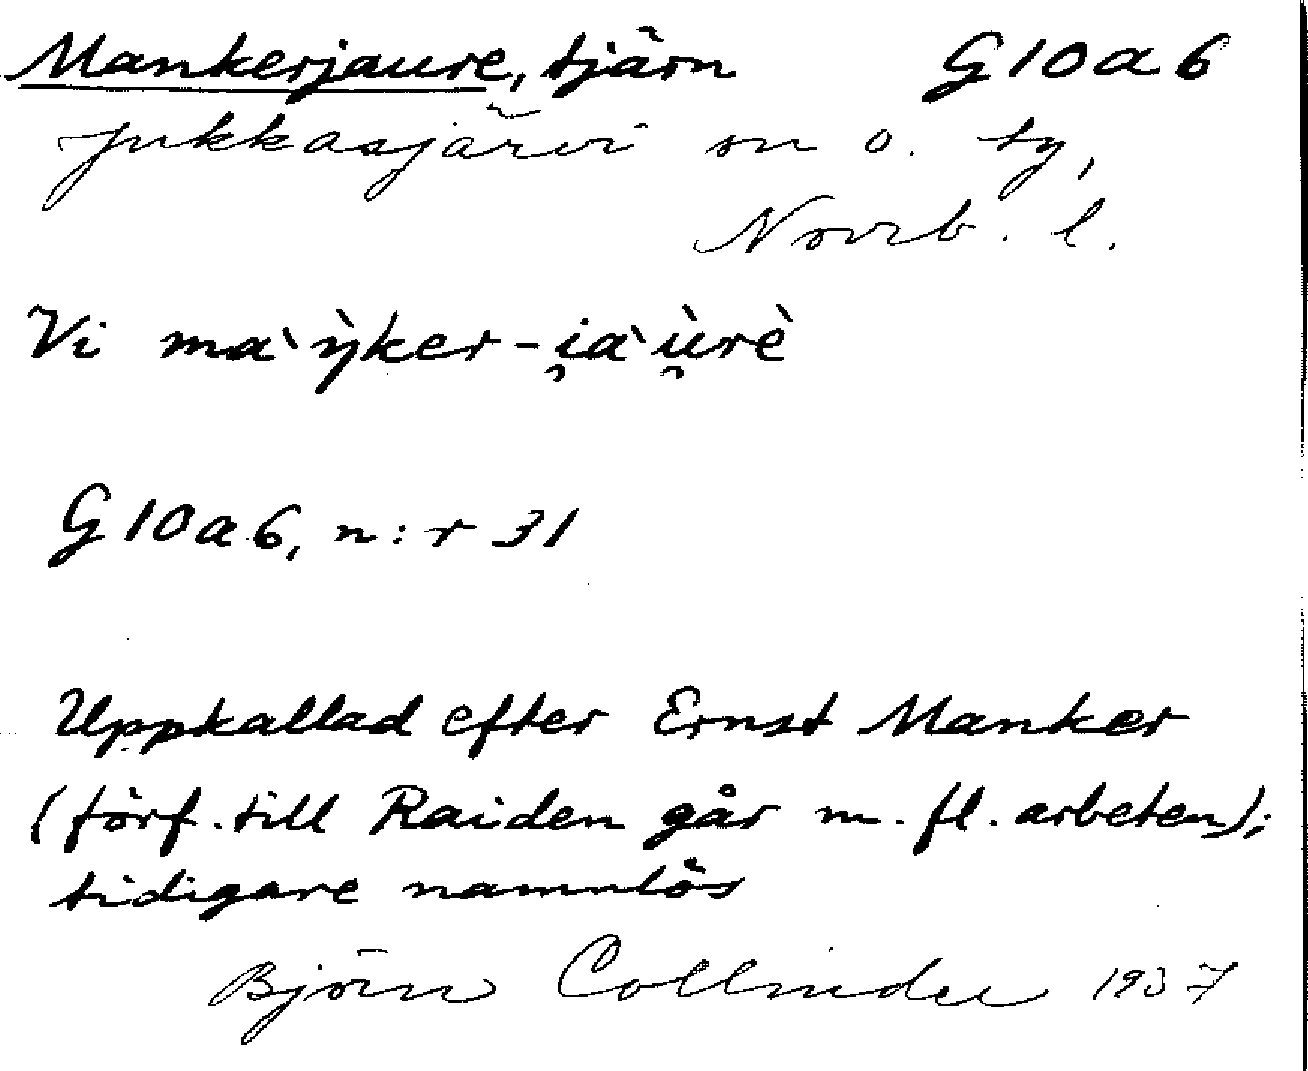 Mankerjaure, tjärn G10a6
Jukkasjärvi sn o. tg,
Norrb. l.
Vi ma`ŋ̀ker-i̯a`ù̯rè
G10a6, n:r 31
Uppkallad efter Ernst Manker
(förf. till Raiden går m. fl. arbeten);
tidigare namnlös
Björn Collinder 1937